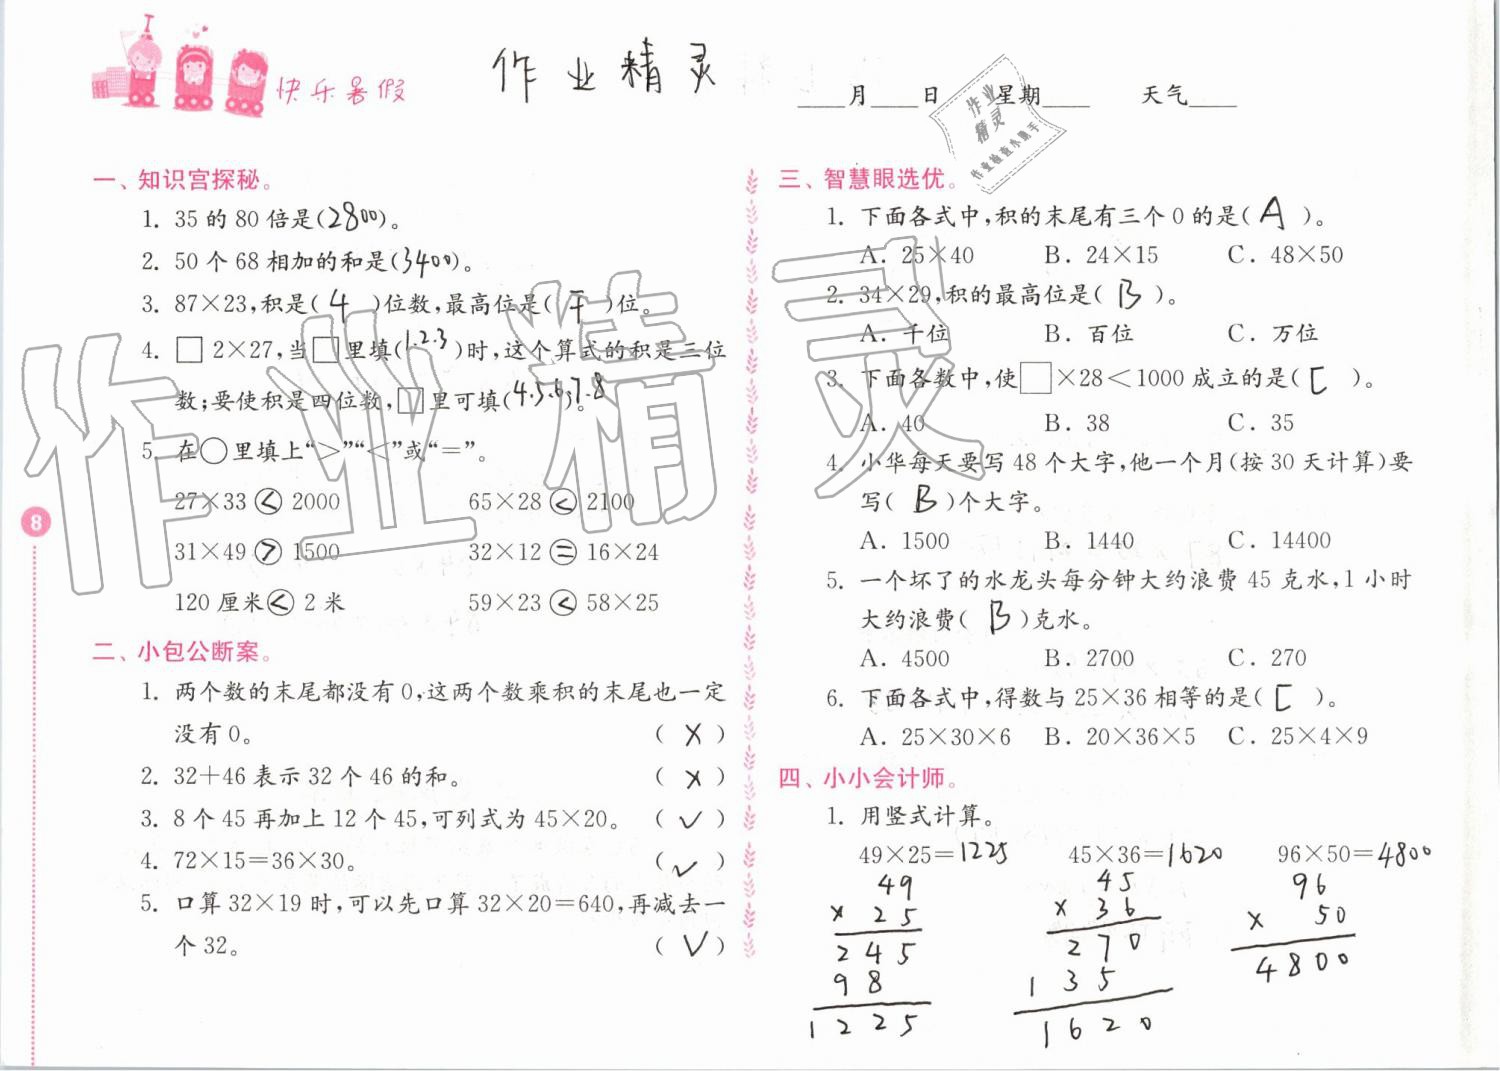 快乐暑假
作业精灵
____月____日 星期____ 天气____
作业
精灵
作业检查小助手
一、知识宫探秘。
1. 35的80倍是(2800)。
2. 50个68相加的和是(3400)。
3. 87×23,积是(4)位数,最高位是(千)位。
4. □2×27,当□里填(1.2.3)时,这个算式的积是三位
数;要使积是四位数,□里可填(4.5.6.7.8)。
5. 在○里填上“>”“<”或“=”。
27×33 < 2000 65×28 < 2100
31×49 > 1500 32×12 = 16×24
120厘米 < 2米 59×23 < 58×25
二、小包公断案。
1. 两个数的末尾都没有0,这两个数乘积的末尾也一定
没有0。 (×)
2. 32+46表示32个46的和。 (×)
3. 8个45再加上12个45,可列式为45×20。 (√)
4. 72×15=36×30。 (√)
5. 口算32×19时,可以先口算32×20=640,再减去一
个32。 (√)
8
三、智慧眼选优。
1. 下面各式中,积的末尾有三个0的是(A)。
A. 25×40 B. 24×15 C. 48×50
2. 34×29,积的最高位是(B)。
A. 千位 B. 百位 C. 万位
3. 下面各数中,使□×28<1000成立的是(C)。
A. 40 B. 38 C. 35
4. 小华每天要写48个大字,他一个月(按30天计算)要
写(B)个大字。
A. 1500 B. 1440 C. 14400
5. 一个坏了的水龙头每分钟大约浪费45克水,1小时
大约浪费(B)克水。
A. 4500 B. 2700 C. 270
6. 下面各式中,得数与25×36相等的是(C)。
A. 25×30×6 B. 20×36×5 C. 25×4×9
四、小小会计师。
1. 用竖式计算。
49×25=1225 45×36=1620 96×50=4800
49 45 96
×25 ×36 ×50
245 270 4800
98 135
1225 1620
作业精灵